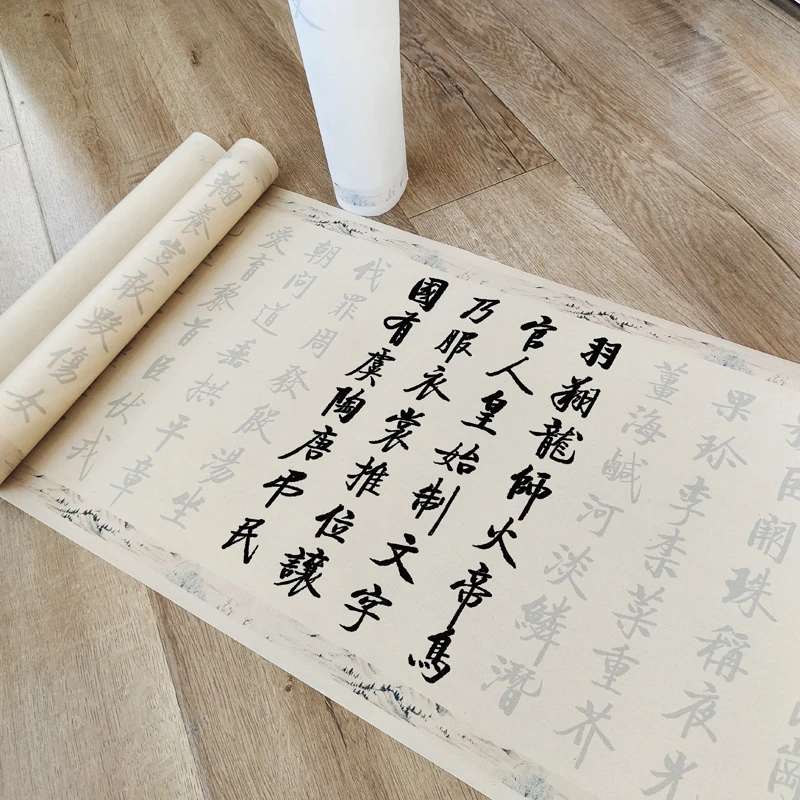 巨闕珠稱夜光
果珍李柰菜重芥
薑海鹹河淡鱗潛
羽翔龍師火帝鳥
官人皇始制文字
乃服衣裳推位讓
國有虞陶唐弔民
代罪周發殷湯坐
朝問道垂拱平章
愛育黎首臣伏戎
鞠養豈敢毀傷女